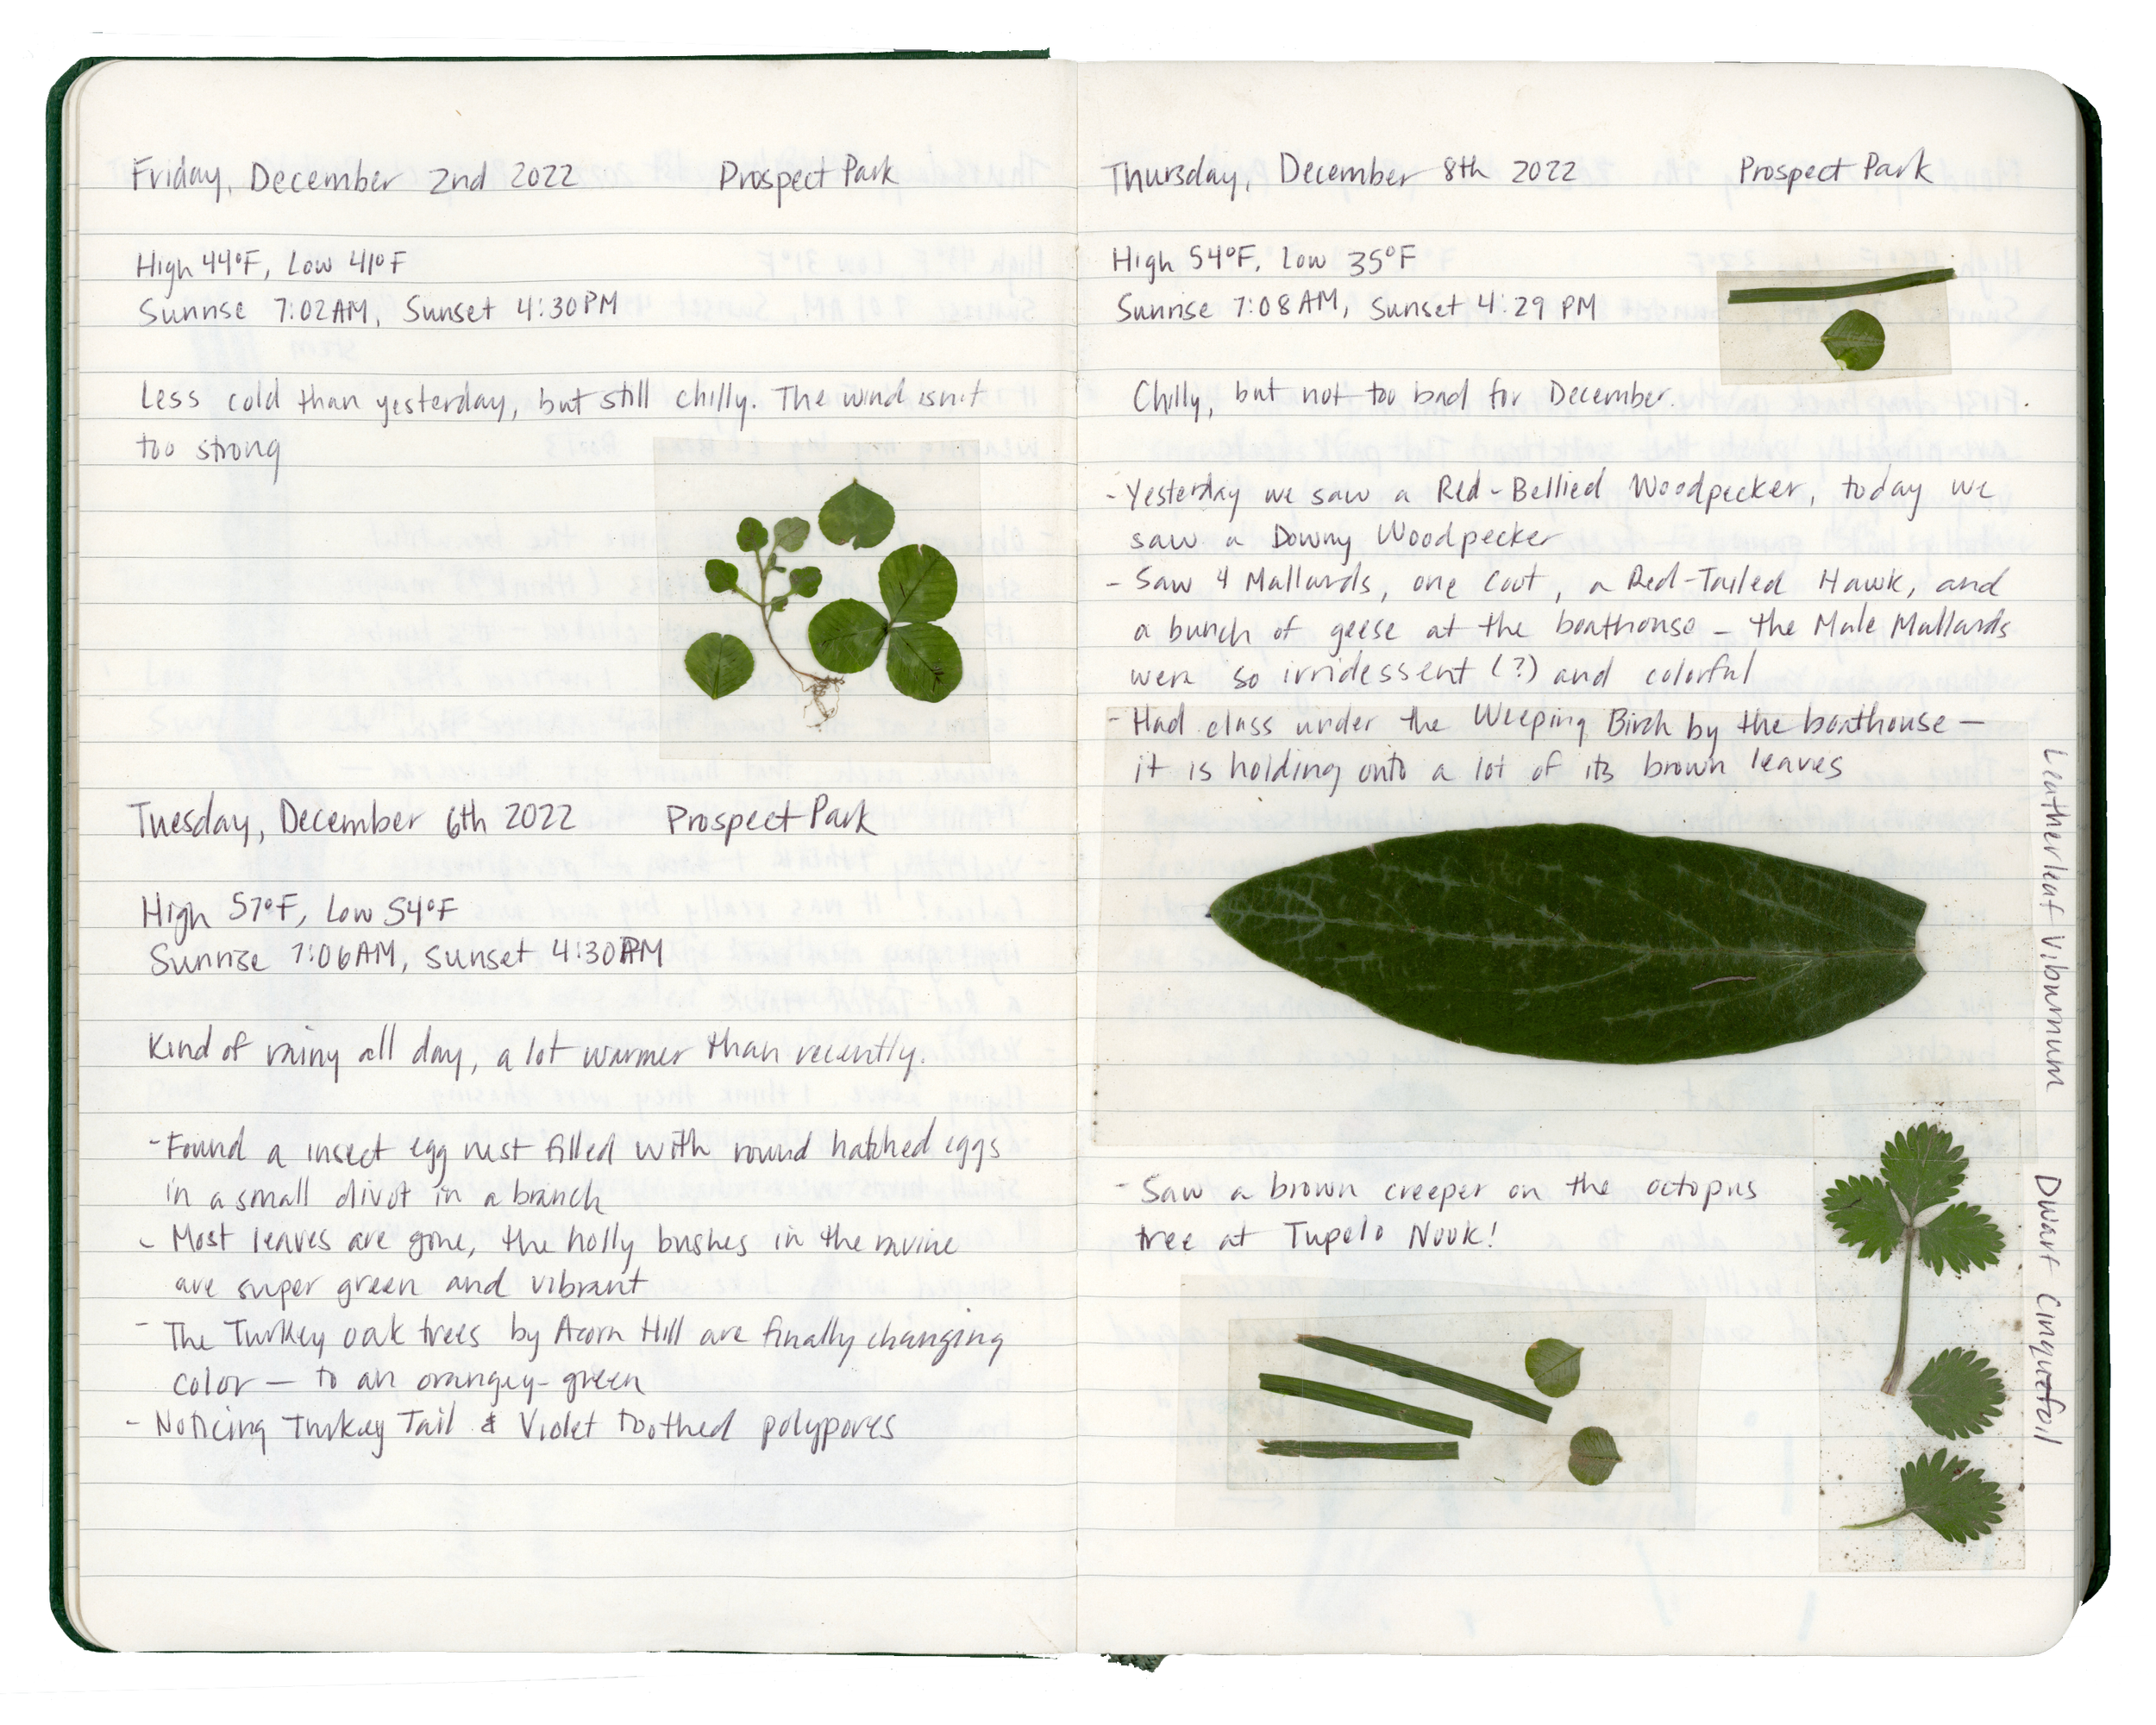 Friday, December 2nd 2022 Prospect Park
High 44°F, Low 41°F
Sunrise 7:02AM, Sunset 4:30PM
Less cold than yesterday, but still chilly. The wind isn't
too strong
Tuesday, December 6th 2022 Prospect Park
High 57°F, Low 54°F
Sunrise 7:06AM, Sunset 4:30PM
Kind of rainy all day, a lot warmer than recently.
- Found a insect egg nest filled with round hatched eggs
in a small divot in a branch
- Most leaves are gone, the holly bushes in the ravine
are super green and vibrant
- The Turkey oak trees by Acorn Hill are finally changing
color — to an orangey-green
- Noticing Turkey Tail & Violet toothed polypores
Thursday, December 8th 2022 Prospect Park
High 54°F, Low 35°F
Sunrise 7:08AM, Sunset 4:29 PM
Chilly, but not too bad for December.
- Yesterday we saw a Red-Bellied Woodpecker, today we
saw a Downy Woodpecker
- Saw 4 Mallards, one Coot, a Red-Tailed Hawk, and
a bunch of geese at the boathouse - the Male Mallards
were so irridessent (?) and colorful
- Had class under the Weeping Birch by the boathouse —
it is holding onto a lot of its brown leaves
Leatherleaf Viburnum
- Saw a brown creeper on the octopus
tree at Tupelo Nook!
Dwarf Cinquefoil